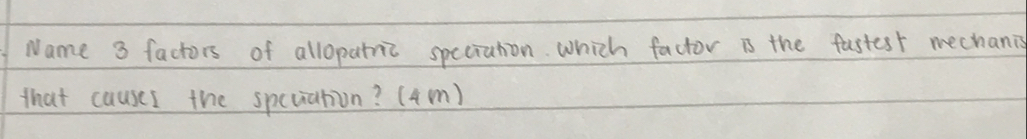 Name 3 factors of allopatric speciation. which factor is the fastest mechanis
that causes the speciation? (4m)